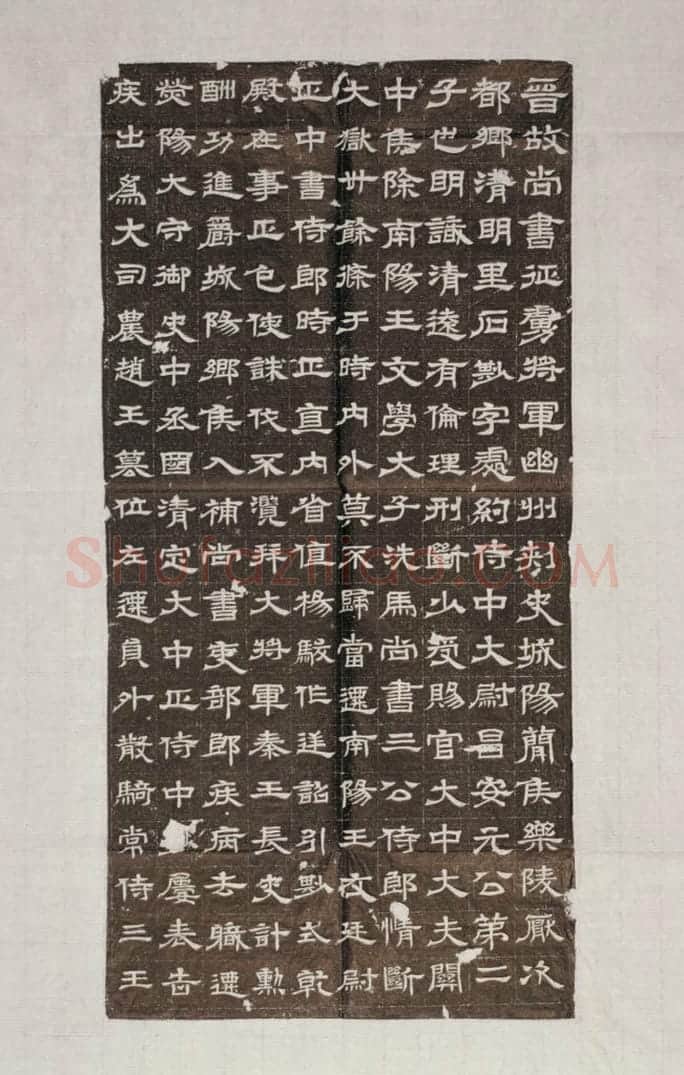 晉故尚書征虜將軍幽州刾史城陽簡侯樂陵厭次
都鄉清明里石尠字處約侍中大尉昌安元公第二
子也明識清遠有倫理刑斷少受賜官大中大夫關
中侯除南陽王文學大子洗馬尚書三公侍郎情斷
大獄卅餘條于時內外莫不歸當遷南陽王友廷尉
正中書侍郎時正直內省值楊駿作逆詔引尠式乾
殿在事正色使誅伐不濫拜大將軍秦王長史計勳
酬功進爵城陽鄉侯入補尚書吏部郎疾病去職遷
熒陽大守御史中丞國清定大中正侍中屢表告
疾出為大司農趙王篡位左遷員外散騎常侍三王
Shufaziliao.COM